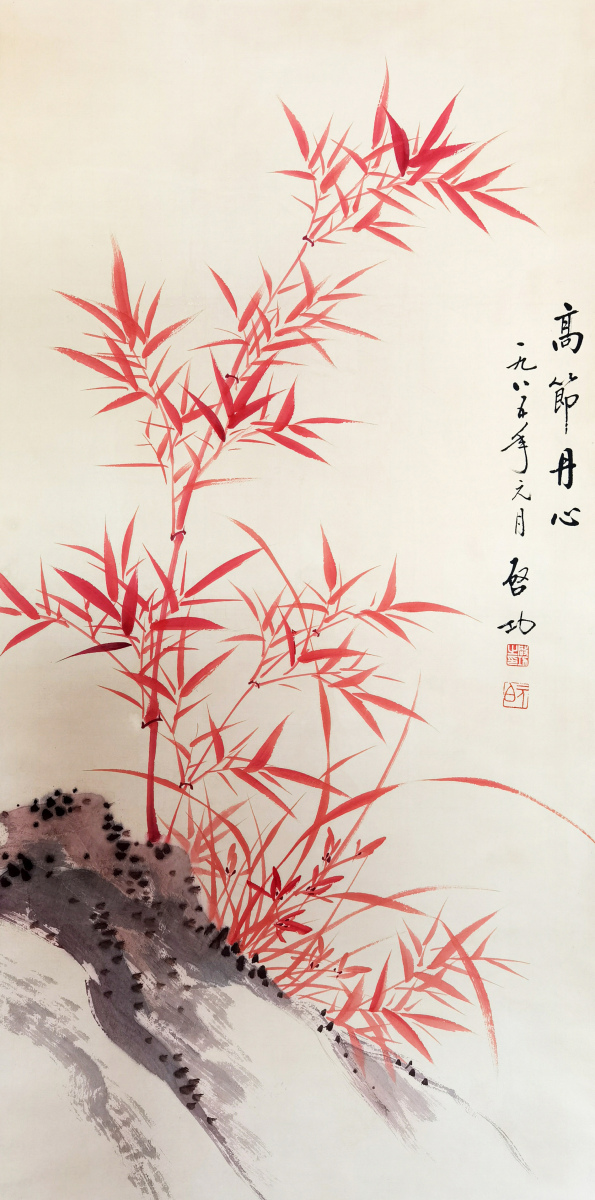 高節丹心
一九八五年元月
啓功